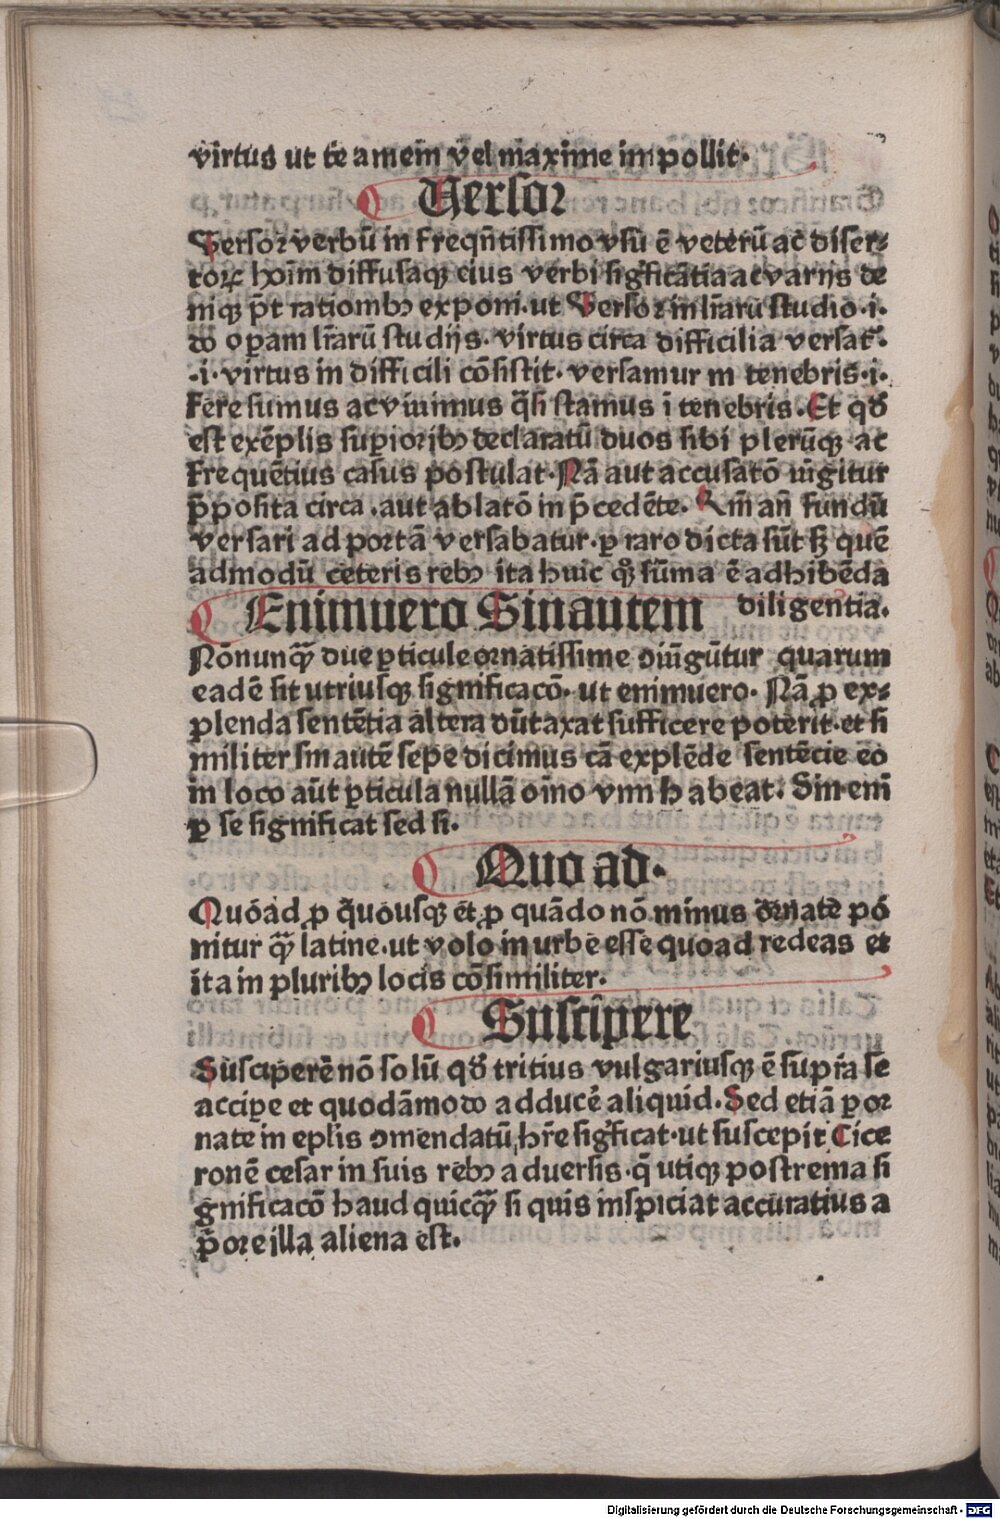 virtus ut te amem vel maxime impollit.
Versor
Versor verbū in freqn̄tissimo vsu ē veterū ac diser⸗
toꝝ hoīm diffusaqꝫ eius verbi sigficātia ac varijs de
niqꝫ pt̄ rationibꝰ exponi. ut Versor in lr̄arū studio .i.
do operam lr̄arū studijs. virtus circa difficilia versat̉.
.i. virtus in difficili cōsistit. versamur in tenebris .i.
fere sumus ac viuimus q̄si stamus ī tenebris. Et qd̄
est exēplis superioribꝰ declaratū duos sibi plerūqꝫ ac
frequētius casus postulat. Nā aut accusatō iūgitur
p̄posita circa . aut ablatō in p̄cedēte. Rm̄ an̄ fundū
versari ad portā versabatur. ꝑ raro dicta sūt sꝫ quē
admodū ceteris rebꝰ ita huic qꝫ sūma ē adhibēda
diligentia.
Enimuero Sinautem
Nōnunqꝫ due ꝑticule ornatissime oiūgūtur quarum
eadē sit utriusqꝫ significacō. ut enimuero. Nā ꝓ ex⸗
plenda sentētia altera dūtaxat sufficere poterit. et si
militer sin autē sepe dicimus cā explēde sentēcie eo
in loco aūt ꝑticula nullā oīno vim habeat. Sin enī
ꝑ se significat sed si.
Quo ad.
Quóad ꝓ q̄uousqꝫ et ꝓ quādo nō minus ornate po
nitur qꝫ latine. ut volo in urbe esse quoad redeas et
ita in pluribꝰ locis cōsimiliter.
Suscipere
Suscipere nō solū qd̄ tritius vulgariusqꝫ ē supra se
accipe et quodāmodo adducere aliquid. Sed etiā ꝑ or
nate in eplis omendatū hr̄e sigficat. ut suscepit Cice
ronē cesar in suis rebꝰ aduersis. q̄ utiqꝫ postrema si
gnificacō haud quicqꝫ si quis inspiciat accuratius a
p̄ore illa aliena est.
Digitalisierung gefördert durch die Deutsche Forschungsgemeinschaft - DFG